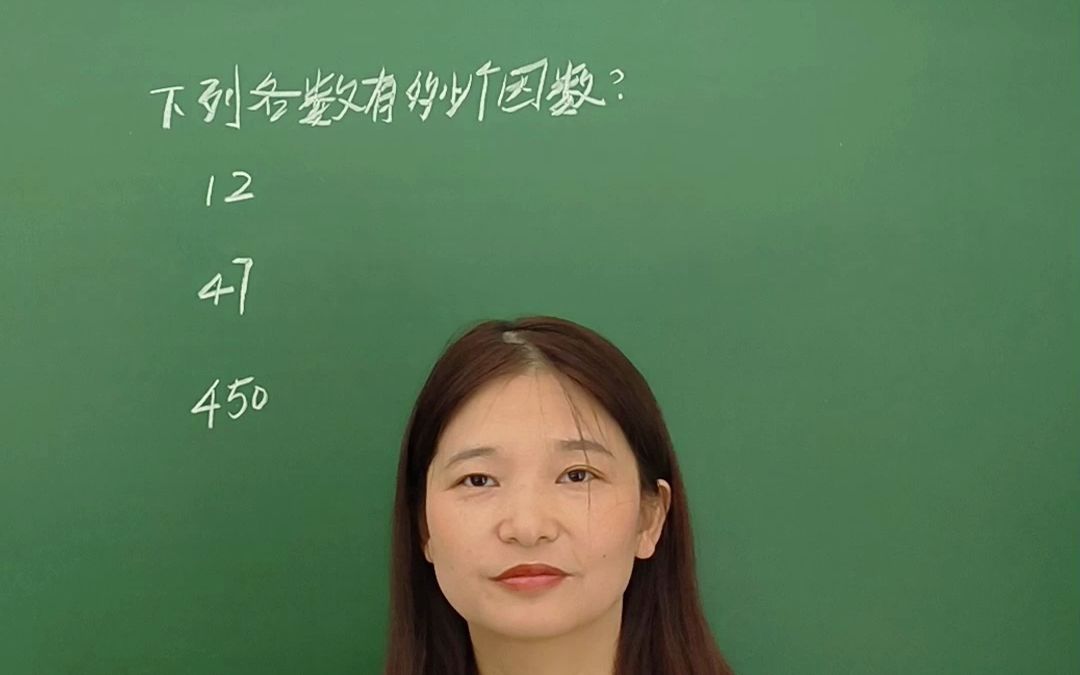 下列各数有多少个因数?
12
47
450